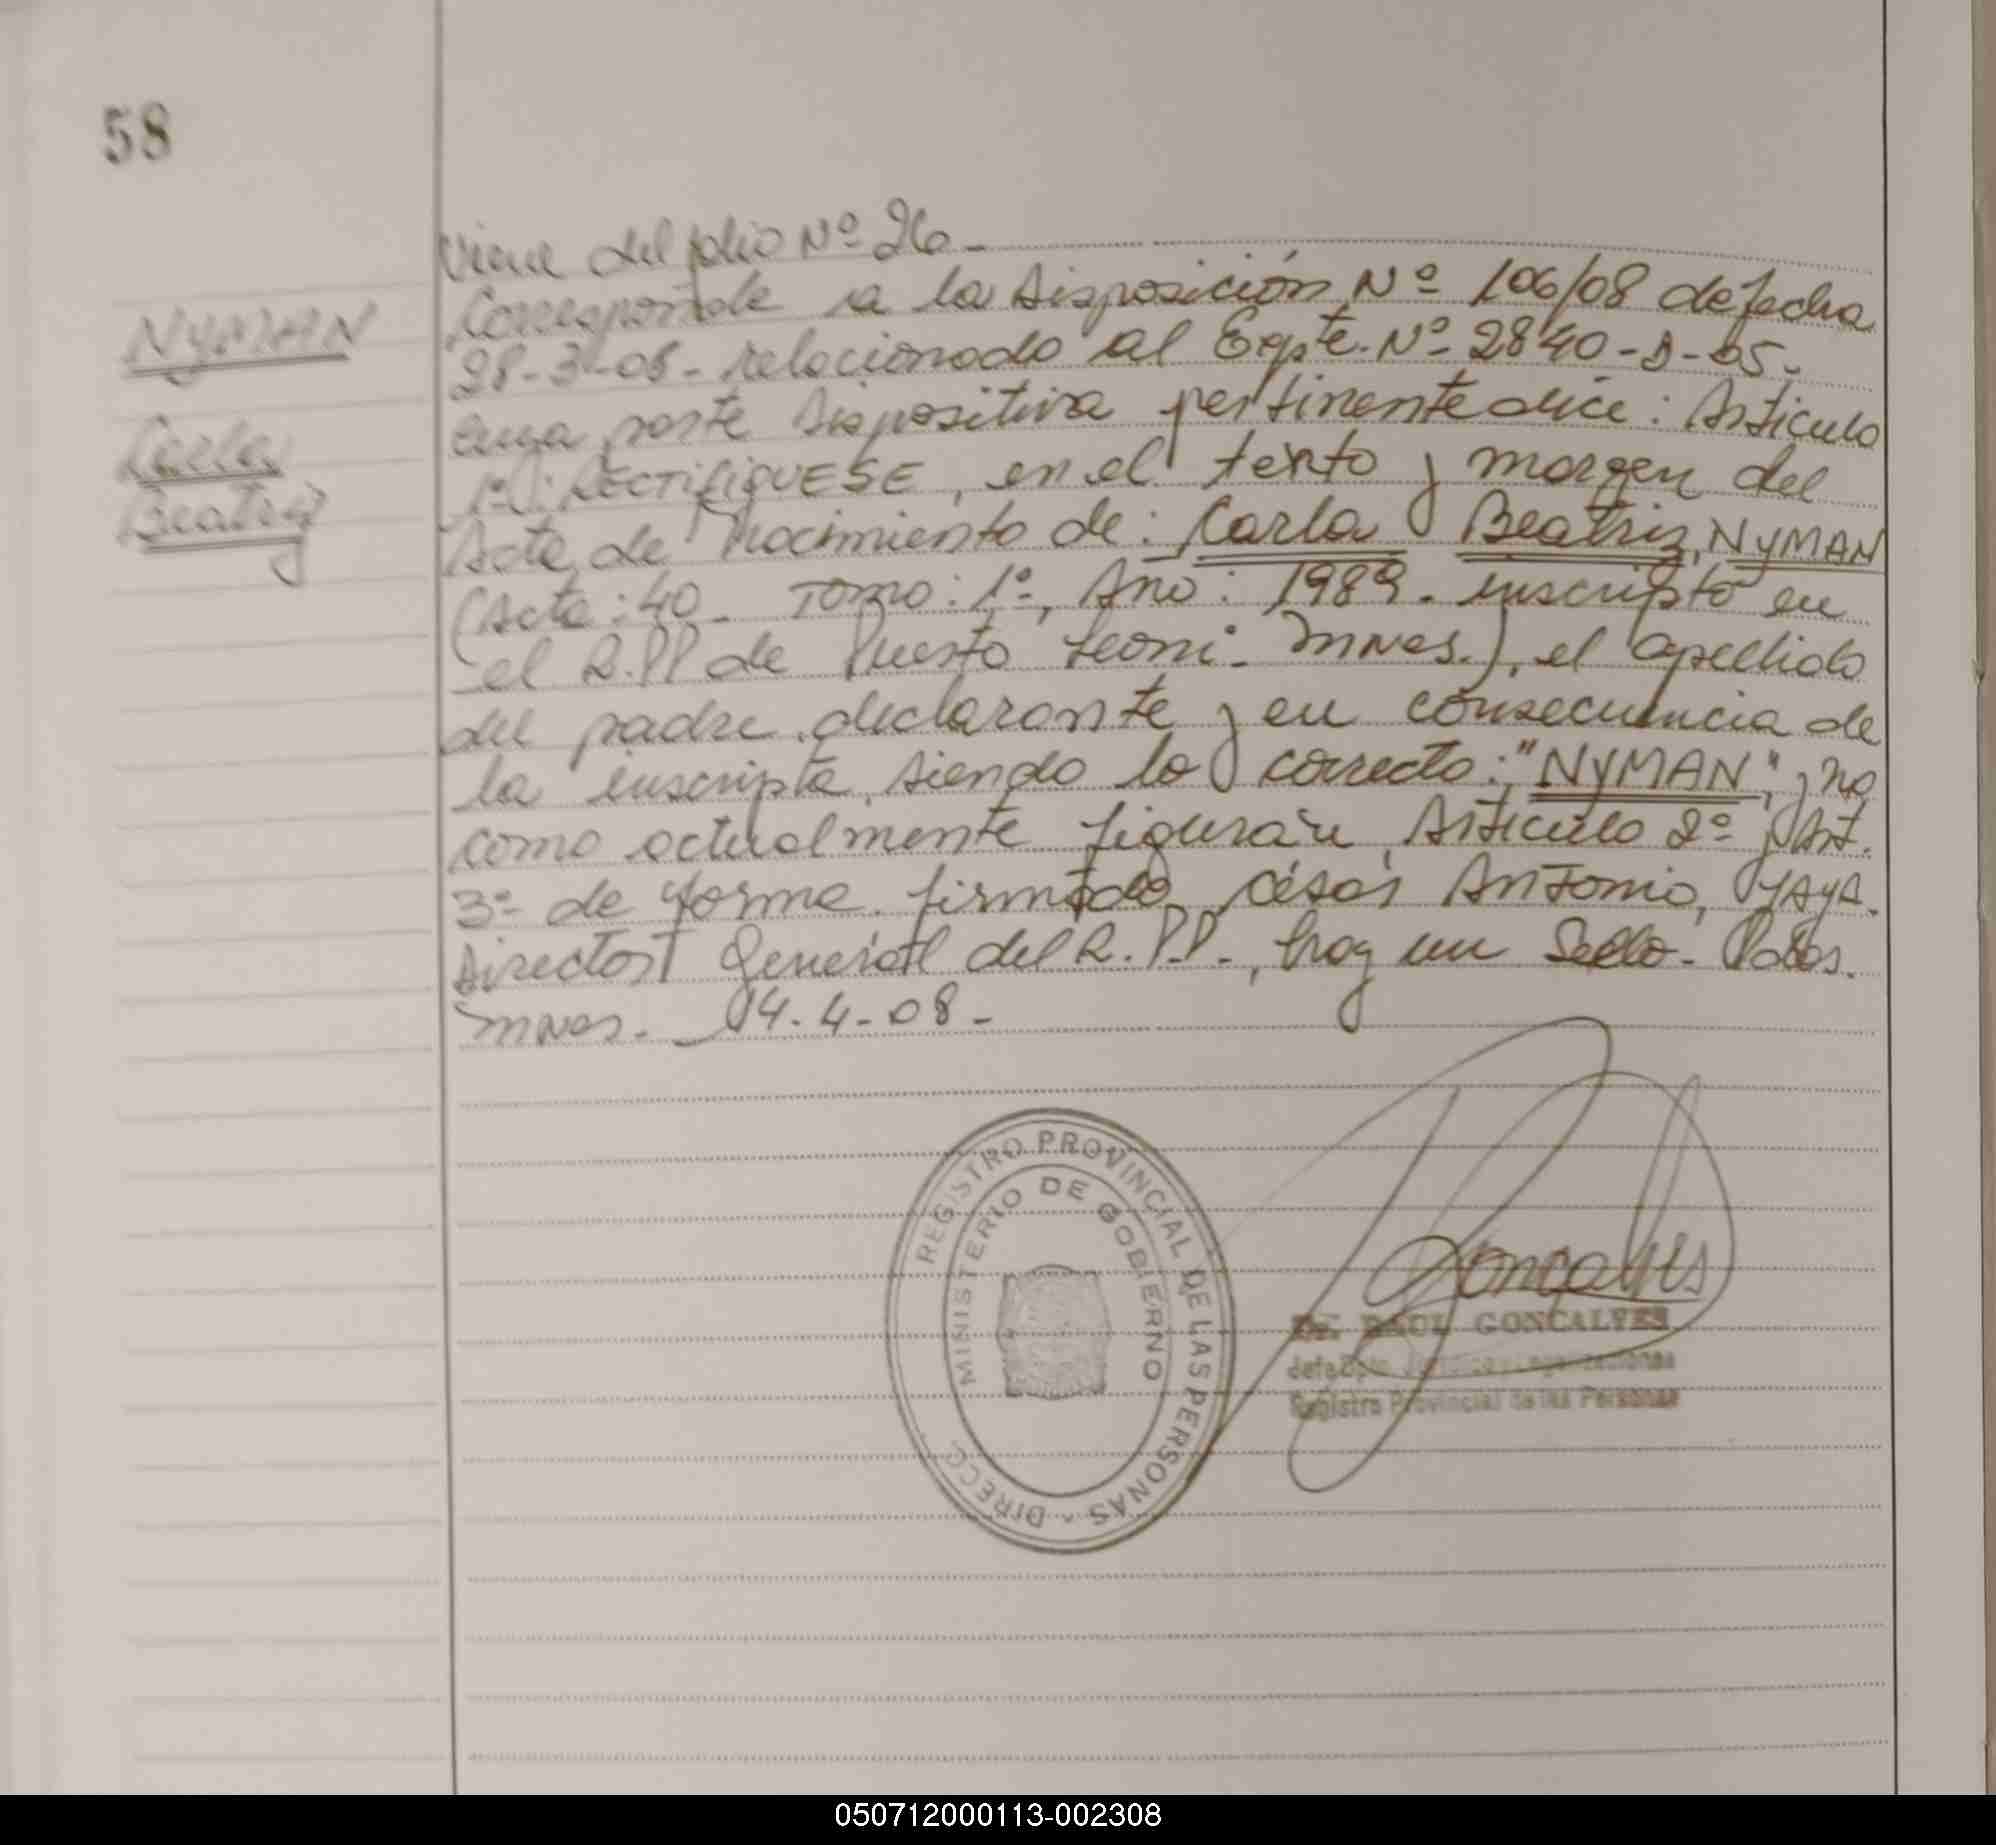 58
NYMAN
Carla
Beatriz
Viene del folio Nº 26 -
Corresponde a la Disposición Nº 106/08 de fecha
28-3-08- relacionado al Expte. Nº 2840-D-05.
cuya parte dispositiva pertinente dice: Artículo
1º: RECTIFIQUESE, en el texto y margen del
Acta de Nacimiento de: Carla Beatriz, NYMAN
(Acta: 40 - Tomo: 1º, Año: 1989. inscripta en
el R.PP de Puesto Leoni- Mnes.), el apellido
del padre declarante y en consecuencia de
la inscripta, siendo lo correcto: "NYMAN", y no
como actualmente figuran, Artículo 2º y Art.
3º de forma. firmado César Antonio, YAYA.
Director General del R.P.P., hay un Sello- Posas.
Mnes. 14-4-08-
REGISTRO PROVINCIAL DE LAS PERSONAS - DIRECC
MINISTERIO DE GOBIERNO
Goncalves
Dr. RAUL GONCALVES
Jefe Dpto.
Registro Provincial de las Personas
050712000113-002308